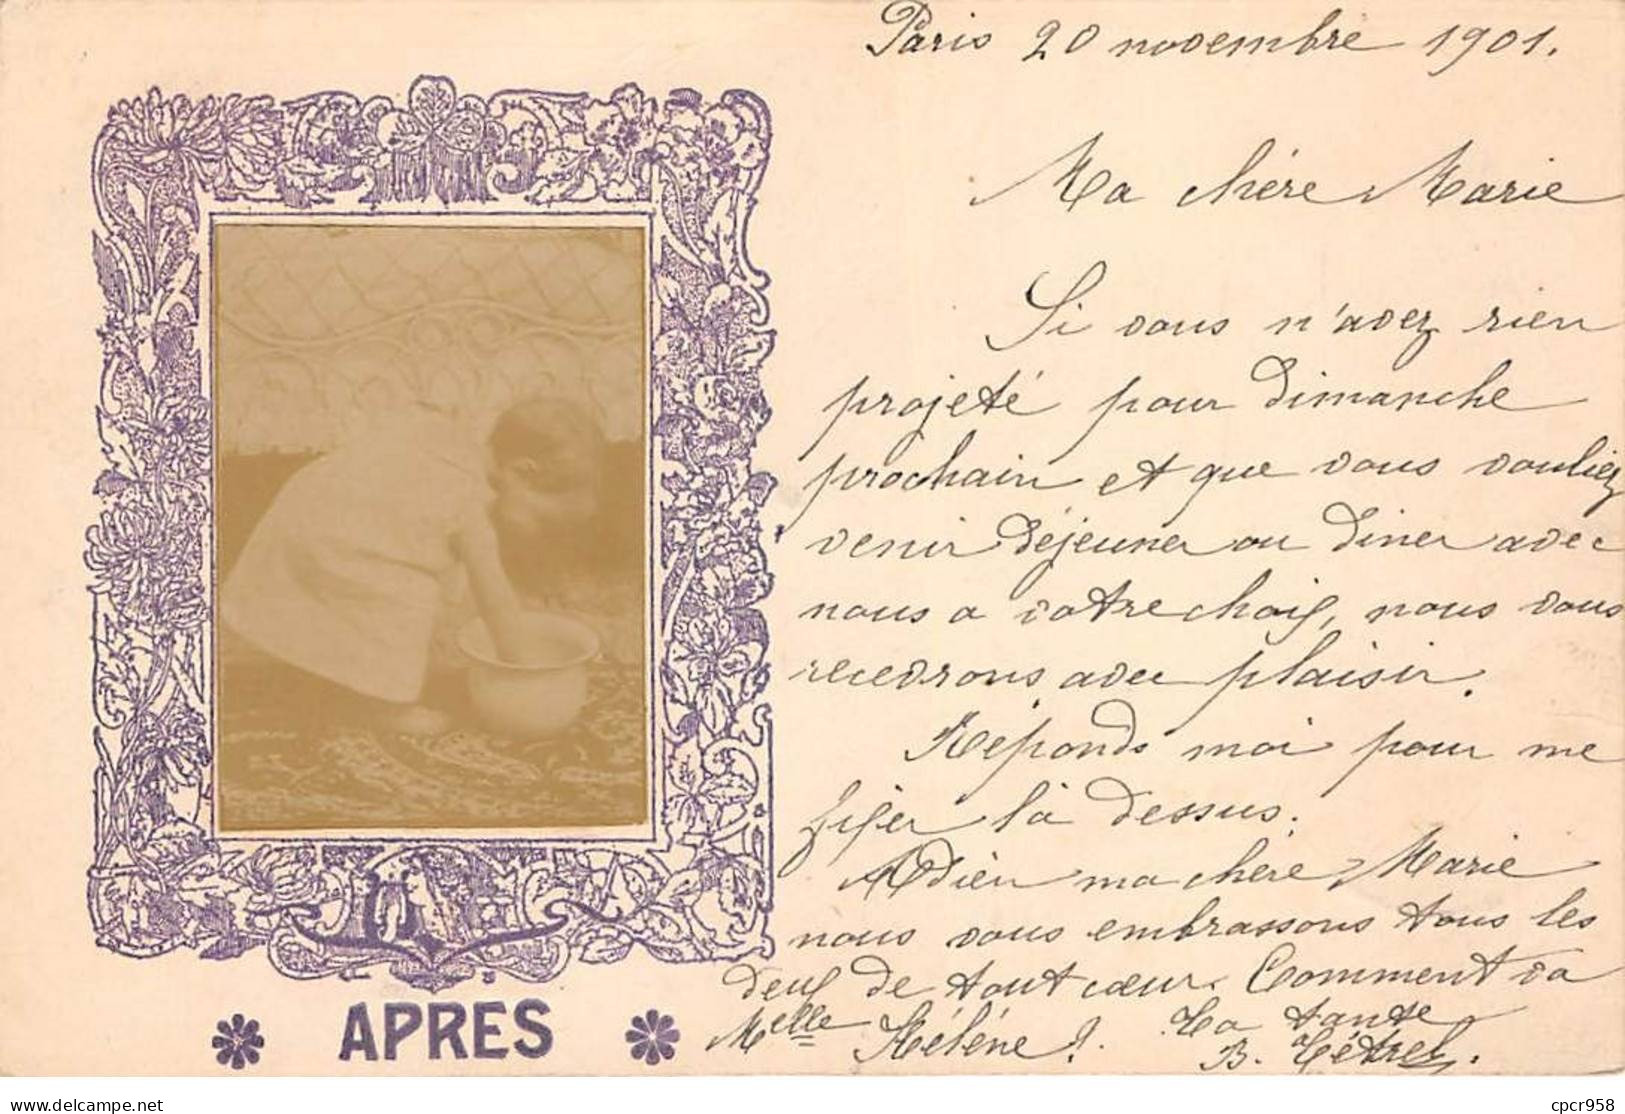 Paris 20 novembre 1901.
Ma chère Marie
Si vous n'avez rien
projeté pour Dimanche
prochain et que vous vouliez
venir déjeuner ou diner avec
nous a votre choix, nous vous
recevrons avec plaisir.
Réponds moi pour me
fixer là dessus.
Adieu ma chère Marie
nous vous embrassons tous les
deux de tout cœur. Comment va
Melle Hélène ?. Ta tante
B.
APRES
delcampe.net
cpcr958